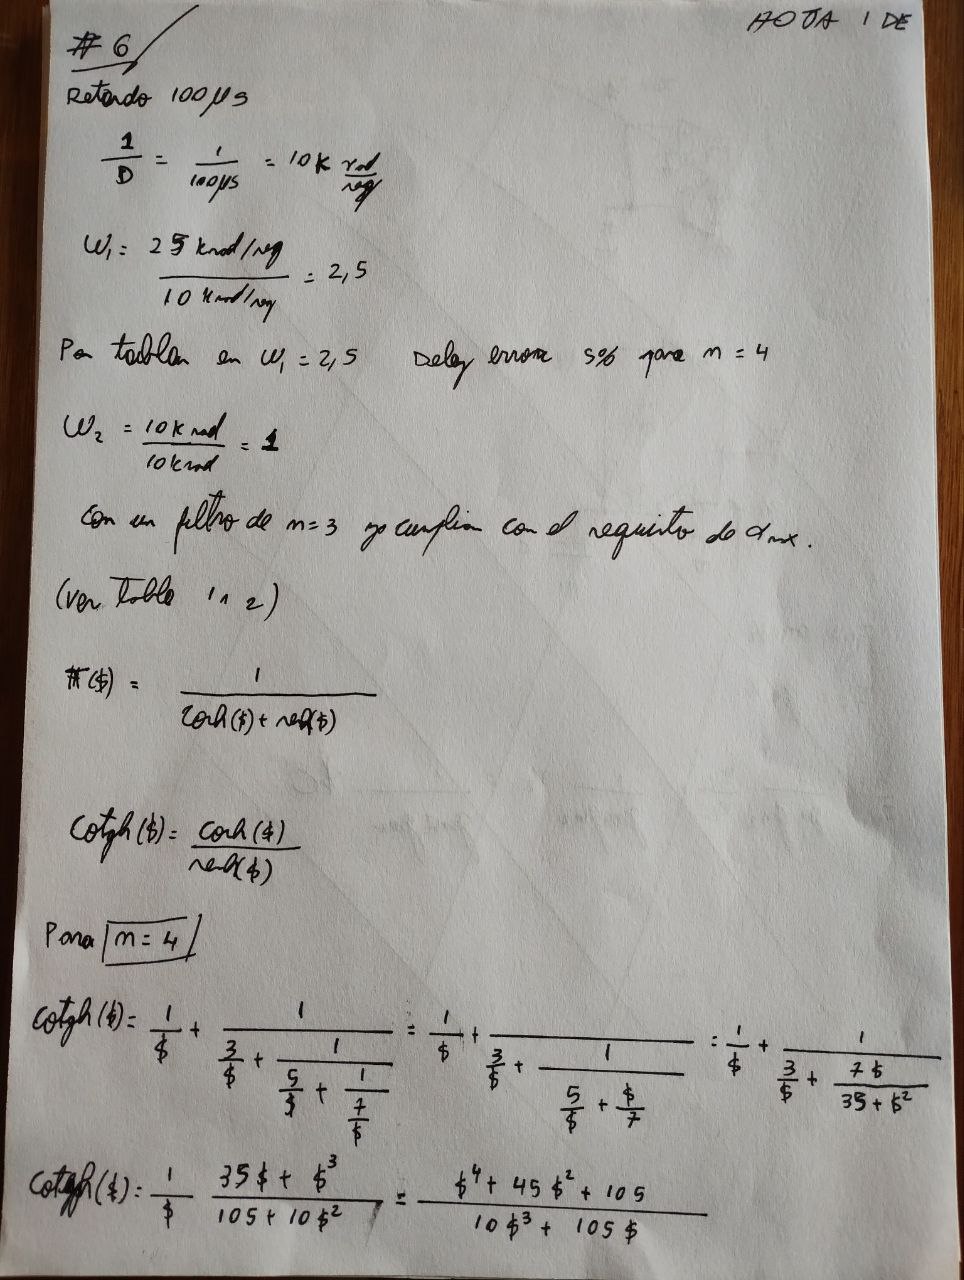 HOJA 1 DE
#6
Retardo 100μs
1/D = 1/100μs = 10K rad/seg
W₁ = 25 krad/seg / 10 krad/seg = 2,5
Por tablas en W₁ = 2,5 Delay error 5% para n = 4
W₂ = 10K rad / 10krad = 1
Con un filtro de n=3 ya cumplian con el requisito de αmx.
(ver tabla 1 2)
H($) = 1 / cosh($) + senh($)
Cotgh($) = cosh($) / senh($)
Para n = 4
cotgh($) = 1/$ + 1/(3/$ + 1/(5/$ + 1/(7/$))) = 1/$ + 1/(3/$ + 1/(5/$ + $/7)) = 1/$ + 1/(3/$ + 7$/(35 + $²))
cotgh($) = 1/$ (35$ + $³)/(105 + 10$²) = ($⁴ + 45$² + 105)/(10$³ + 105$)